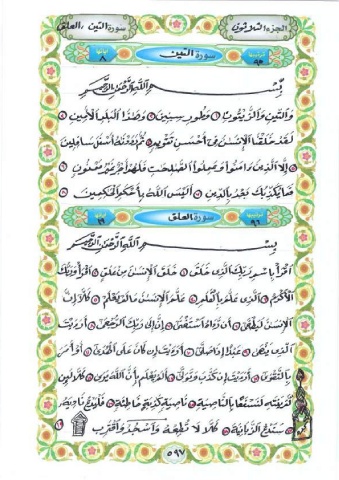 الجزء الثلاثون
سورة التين، العلق
ترتيبها ٩٥ سورة التين آياتها ٨
بِسْمِ اللَّهِ الرَّحْمَٰنِ الرَّحِيمِ
وَالتِّينِ وَالزَّيْتُونِ ۝ وَطُورِ سِينِينَ ۝ وَهَٰذَا الْبَلَدِ الْأَمِينِ ۝
لَقَدْ خَلَقْنَا الْإِنْسَٰنَ فِي أَحْسَنِ تَقْوِيمٍ ۝ ثُمَّ رَدَدْنَٰهُ أَسْفَلَ سَٰفِلِينَ
۝ إِلَّا الَّذِينَ ءَامَنُوا وَعَمِلُوا الصَّٰلِحَٰتِ فَلَهُمْ أَجْرٌ غَيْرُ مَمْنُونٍ ۝
فَمَا يُكَذِّبُكَ بَعْدُ بِالدِّينِ ۝ أَلَيْسَ اللَّهُ بِأَحْكَمِ الْحَٰكِمِينَ ۝
ترتيبها ٩٦ سورة العلق آياتها ١٩
بِسْمِ اللَّهِ الرَّحْمَٰنِ الرَّحِيمِ
اقْرَأْ بِاسْمِ رَبِّكَ الَّذِي خَلَقَ ۝ خَلَقَ الْإِنْسَٰنَ مِنْ عَلَقٍ ۝ اقْرَأْ وَرَبُّكَ
الْأَكْرَمُ ۝ الَّذِي عَلَّمَ بِالْقَلَمِ ۝ عَلَّمَ الْإِنْسَٰنَ مَا لَمْ يَعْلَمْ ۝ كَلَّا إِنَّ
الْإِنْسَٰنَ لَيَطْغَىٰ ۝ أَنْ رَءَاهُ اسْتَغْنَىٰ ۝ إِنَّ إِلَىٰ رَبِّكَ الرُّجْعَىٰ ۝ أَرَءَيْتَ
الَّذِي يَنْهَىٰ ۝ عَبْدًا إِذَا صَلَّىٰ ۝ أَرَءَيْتَ إِنْ كَانَ عَلَى الْهُدَىٰ ۝ أَوْ أَمَرَ
بِالتَّقْوَىٰ ۝ أَرَءَيْتَ إِنْ كَذَّبَ وَتَوَلَّىٰ ۝ أَلَمْ يَعْلَمْ بِأَنَّ اللَّهَ يَرَىٰ ۝ كَلَّا لَئِنْ
لَمْ يَنْتَهِ لَنَسْفَعًا بِالنَّاصِيَةِ ۝ نَاصِيَةٍ كَٰذِبَةٍ خَاطِئَةٍ ۝ فَلْيَدْعُ نَادِيَهُ
۝ سَنَدْعُ الزَّبَانِيَةَ ۝ كَلَّا لَا تُطِعْهُ وَاسْجُدْ وَاقْتَرِبْ ۝
٥٩٧